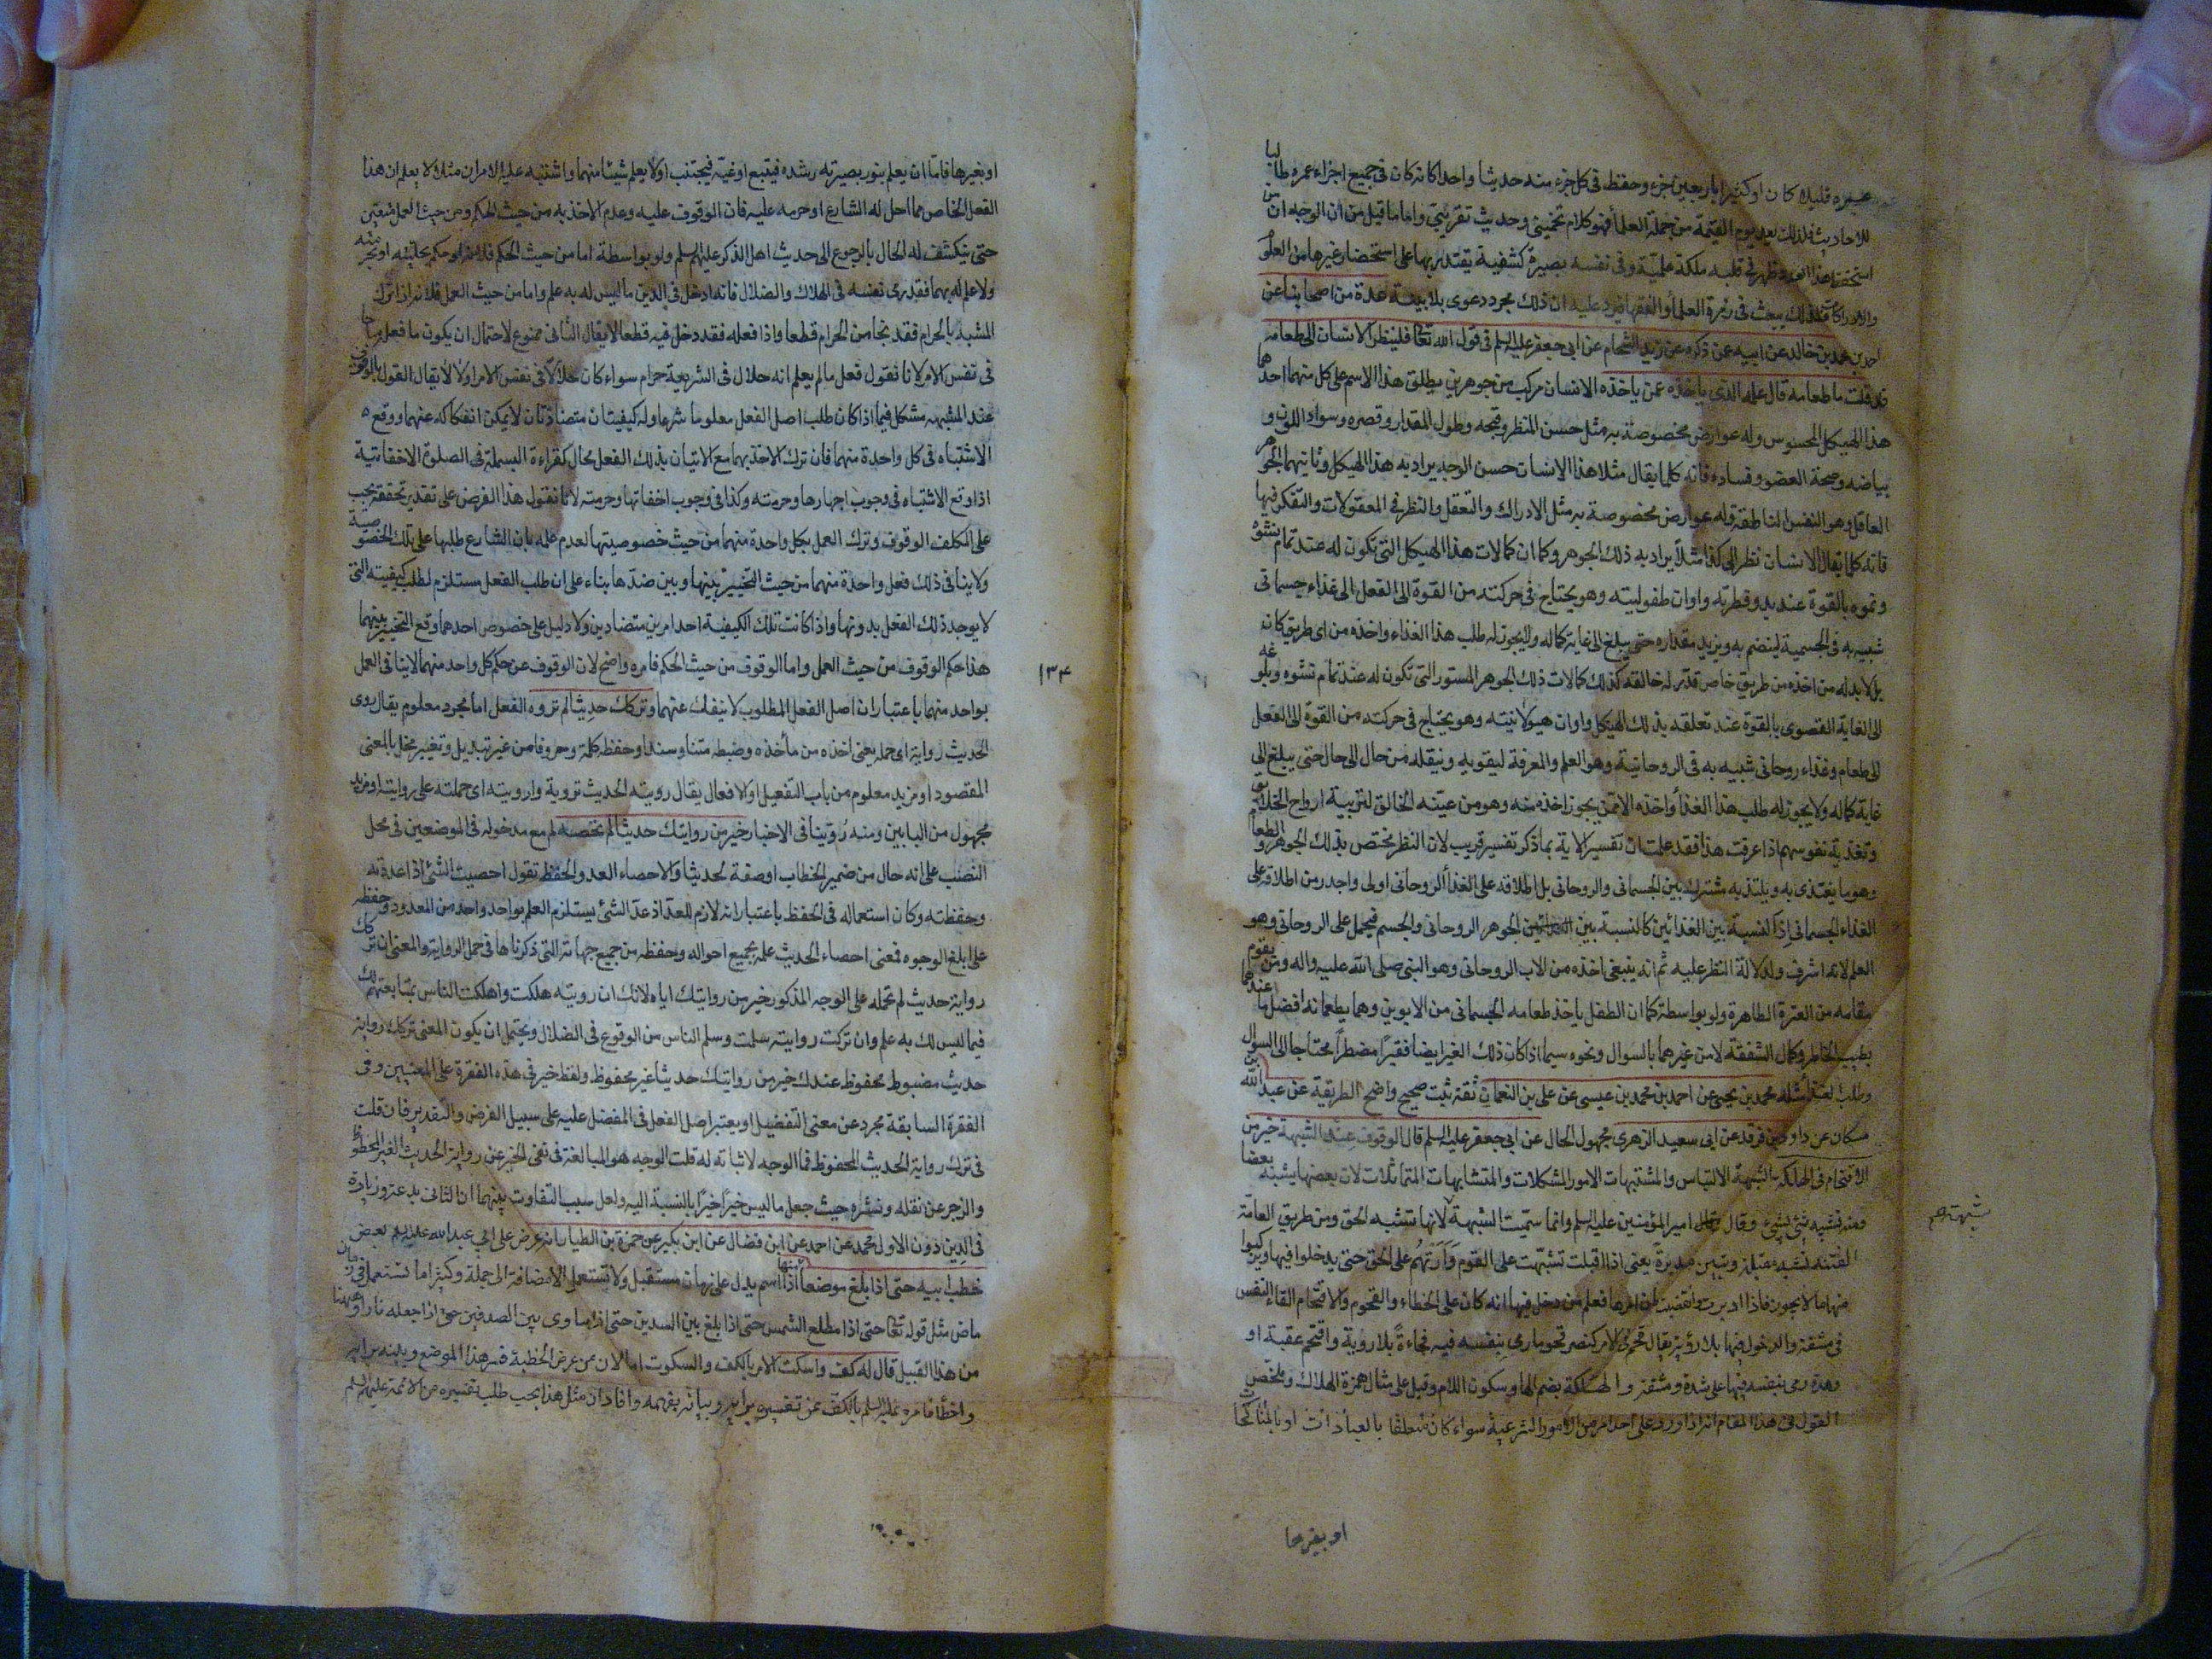 عمره قليلا كان او كثيرا باربعين جزء وحفظ فى كل جزء منه حديثا واحدا كانه كان فى جميع اجزاء عمره طالبا
للاحاديث فلذلك يعد يوم القيمة من جملة العلماء فهو كلام تخمينى وحديث تقريبى واما ما قيل من ان الوجه ان من
استحفظ هذا العدد ظهر فى قلبه ملكة علمية وفى نفسه بصيرة كشفية يقتدر بها على استحضار غيرها من العلو
والادراكات فلذلك يبعث فى زمرة العلماء والفقهاء فيرد عليه ان ذلك مجرد دعوى بلا بينة عدة من اصحابنا عن
احمد بن محمد بن خالد عن ابيه عمن ذكره عن زيد الشحام عن ابى جعفر عليه السلم فى قول الله تعا فلينظر الانسان الى طعامه
قال قلت ما طعامه قال علمه الذى ياخذه عمن ياخذه الانسان مركب من جوهرين يطلق هذا الاسم على كل منهما احدهما
هذا الهيكل المحسوس وله عوارض مخصوصة به مثل حسن المنظر وقبحه وطول المقدار وقصره وسواد اللون و
بياضه وصحة العضو وفساده فانه كلما يقال مثلا هذا الانسان حسن الوجه يراد به هذا الهيكل وثانيهما الجوهر
العاقل وهو النفس الناطقة وله عوارض مخصوصة به مثل الادراك والتعقل والنظر فى المعقولات والتفكر فيها
فانه كلما يقال الانسان نظر الى كذا مثلا يراد به ذلك الجوهر وكما ان كمالات هذا الهيكل التى تكون له عند تمام نشوه
ونموه بالقوة عند بدو فطرته واوان طفوليته وهو يحتاج فى حركته من القوة الى الفعل الى غذاء جسمانى
شبيه به فى الجسمية لينضم به ويزيد مقداره حتى يبلغ الى غاية كماله ولا يجوز له طلب هذا الغذاء واخذه من اى طريق كان
بل لا بد له من اخذه من طريق خاص قدر له خالقه كذلك كمالات ذلك الجوهر المستور التى تكون له عند تمام نشوه وبلوغه
الى الغاية القصوى بالقوة عند تعلقه بذلك الهيكل واوان هيولانيته وهو يحتاج فى حركته من القوة الى الفعل
الى طعام وغذاء روحانى شبيه به فى الروحانية وهو العلم والمعرفة ليقويه وينقله من حال الى حال حتى يبلغ الى
غاية كماله ولا يجوز له طلب هذا الغذاء واخذه الا ممن يجوز اخذه منه وهو من عينه الخالق لتربية ارواح الخلائق
وتغذية نفوسهم اذا عرفت هذا فقد علمت ان تفسير الاية بما ذكر تفسير قريب لان النظر مختص بذلك الجوهر والطعام
وهو ما يغتذى به ويلتذ به مشترك بين الجسمانى والروحانى بل اطلاقه على الغذاء الروحانى اولى واجدر من اطلاقه على
الغذاء الجسمانى اذ النسبة بين الغذائين كالنسبة بين الجوهر الروحانى والجسم فيحمل على الروحانى وهو
العلم لانه اشرف ولدلالة النظر عليه ثم انه ينبغى اخذه من الاب الروحانى وهو النبى صلى الله عليه واله ومن يقوم
مقامه من العترة الطاهرة ولو بواسطة كما ان الطفل ياخذ طعامه الجسمانى من الابوين وهما يطعمانه افضل ما عندهما
بطيب الخاطر وكمال الشفقة لا من غيرهما بالسوال ونحوه سيما اذا كان ذلك الغير ايضا فقيرا مضطرا محتاجا الى السؤال
وطلب لغذاء مثله محمد بن يحيى عن احمد بن محمد بن عيسى عن على بن النعمان ثقة ثبت صحيح واضح الطريقة عن عبد الله بن
مسكان عن داود بن فرقد عن ابى سعيد الزهرى مجهول الحال عن ابى جعفر عليه السلم قال الوقوف عند الشبهة خير من
الاقتحام فى الهلكة الشبهة الالتباس والمشتبهات الامور المشكلات والمتشابهات المتماثلات لان بعضها يشبه بعضا
ومنه تشبيه شئ بشئ وقال امير المؤمنين عليه السلم وانما سميت الشبهة شبهة لانها تشبه الحق ومن طريق العامة
الفتنة تشبه مقبلة وتبين مدبرة يعنى اذا اقبلت تشبهت على القوم وارتهم على الحق حتى يدخلوا فيها ويركبوا
منها ما لا يجوز فاذا ادبرت وانقضت بان امرها فعلم من دخل فيها انه كان على الخطاء والقحوم والاقتحام القاء النفس
فى مشقة والدخول فيها بلا روية يقال قحم فى الامر كنصر قحوما رمى بنفسه فيه فجاءة بلا روية واقتحم عقبة او
وهدة رمى بنفسه فيها على شدة ومشقة والهلكة بضم الهاء وسكون اللام وقيل على مثال همزة الهلاك وملخص
القول فى هذا المقام انه اذا ورد على احد امر من الامور الشرعية سواء كان متعلقا بالعبادات او بالمناكحات
او بغيرها
شبهة صح
او بغيرها فاما ان يعلم بنور بصيرته رشده فيتبع او غيه فيجتنب او لا يعلم شيئا منهما واشتبه عليه الامران مثلا لا يعلم ان هذا
الفعل الخاص مما احل له الشارع او حرمه عليه فان الوقوف عليه وعدم الاخذ به من حيث الحكم ومن حيث العمل متعين
حتى ينكشف له الحال بالرجوع الى حديث اهل الذكر عليهم السلم ولو بواسطة اما من حيث الحكم فلانه لو حكم بحليته او بحرمته
ولا علم له بهما فقد رمى نفسه فى الهلاك والضلال فانه ادخل فى الدين ما ليس له به علم واما من حيث العمل فلانه اذا ترك
المشبه بالحرام فقد نجا من الحرام قطعا واذا فعله فقد دخل فيه قطعا لا يقال الثانى ممنوع لاحتمال ان يكون ما فعله مباحا
فى نفس الامر لانا نقول فعل ما لم يعلم انه حلال فى الشريعة حرام سواء كان حلالا فى نفس الامر او لا لا يقال القول بالوقوف
عند المشبهه مشكل فيما اذا كان طلب اصل الفعل معلوما شرعا وله كيفيتان متضادتان لا يمكن انفكاكه عنهما ووقع
الاشتباه فى كل واحدة منهما فان ترك الاخذ بهما مع الاتيان بذلك الفعل محال كقراءة البسملة فى الصلوة الاخفاتية
اذا وقع الاشتباه فى وجوب اجهارها وحرمته وكذا فى وجوب اخفاتها وحرمته لانا نقول هذا الفرض على تقدير تحققه يجب
على المكلف الوقوف وترك العمل بكل واحدة منهما من حيث خصوصيتها لعدم علمه بان الشارع طلبها على تلك الخصوصية
ولا ينافى ذلك فعل واحدة منهما من حيث التخيير بينها وبين ضدها بناء على ان طلب الفعل مستلزم لطلب كيفيته التى
لا يوجد ذلك الفعل بدونها واذا كانت تلك الكيفية احد امرين متضادين ولا دليل على خصوص احدهما وقع التخيير بينهما
هذا حكم الوقوف من حيث العمل واما الوقوف من حيث الحكم فامره واضح لان الوقوف عن حكم كل واحد منهما لا ينافى العمل
بواحد منهما باعتبار ان اصل الفعل المطلوب لا ينفك عنهما وتركك حديثا لم تروه الفعل اما مجرد معلوم يقال روى
الحديث رواية اى حمله يعنى اخذه من مأخذه وضبطه متنا وسندا وحفظه كلمة وحروفا من غير تبديل وتغيير مخل بالمعنى
المقصود او مزيد معلوم من باب التفعيل او الافعال يقال رويته الحديث تروية وارويته اى حملته على روايته او مزيد
مجهول من البابين ومنه روينا فى الاخبار خير من روايتك حديثا لم تحصه لم مع مدخوله فى الموضعين فى محل
النصب على انه حال من ضمير الخطاب او صفة لحديثا والاحصاء العد والحفظ تقول احصيت الشئ اذا عددته
وحفظته وكان استعماله فى الحفظ باعتبار انه لازم للعد اذ عد الشئ يستلزم العلم بواحد واحد من المعدود وحفظه
على ابلغ الوجوه فمعنى احصاء الحديث علمه بجميع احواله وحفظه من جميع جهاته التى ذكرناها فى حمل الرواية والمعنى ان تركك
رواية حديث لم تحمله على الوجه المذكور خير من روايتك اياه لانك ان رويته هلكت واهلكت الناس بمتابعتهم لك
فيما ليس لك به علم وان تركت روايته سلمت وسلم الناس من الوقوع فى الضلال ويحتمل ان يكون المعنى تركك رواية
حديث مضبوط محفوظ عندك خير من روايتك حديثا غير محفوظ ولفظ خير فى هذه الفقرة على المعنيين وفى
الفقرة السابقة مجرد عن معنى التفضيل او يعتبر اصل الفعل فى المفضل عليه على سبيل الفرض والتقدير فان قلت
فى ترك رواية الحديث المحفوظ فما الوجه لاثباته له قلت الوجه هو المبالغة فى نفى الخير عن رواية الحديث الغير المحفوظ
والزجر عن نقله ونشره حيث جعل ما ليس خيرا خيرا بالنسبة اليه ولعل سبب التفاوت بينهما ان الثانى بدعة وزيادة
فى الدين دون الاول محمد عن احمد عن ابن فضال عن ابن بكير عن حمزة بن الطيار انه عرض على ابى عبد الله عليه السلم بعض
خطب ابيه حتى اذا بلغ موضعا منها اذا اسم يدل على زمان مستقبل ولا تستعمل الا مضافة الى جملة وكثيرا ما تستعمل فى زمان
ماض مثل قوله تعا حتى اذا مطلع الشمس حتى اذا بلغ بين السدين حتى اذا ساوى بين الصدفين حتى اذا جعله نارا وههنا
من هذا القبيل قال له كف واسكت الامر بالكف والسكوت اما لان من عرض الخطبة فسر هذا الموضع وبينه برايه
واخطأ فامره عليه السلم بالكف عن تفسيره برايه وبيانه بفهمه وافاد ان مثل هذا يجب طلب تفسيره من الائمة عليهم السلم
١٣٤